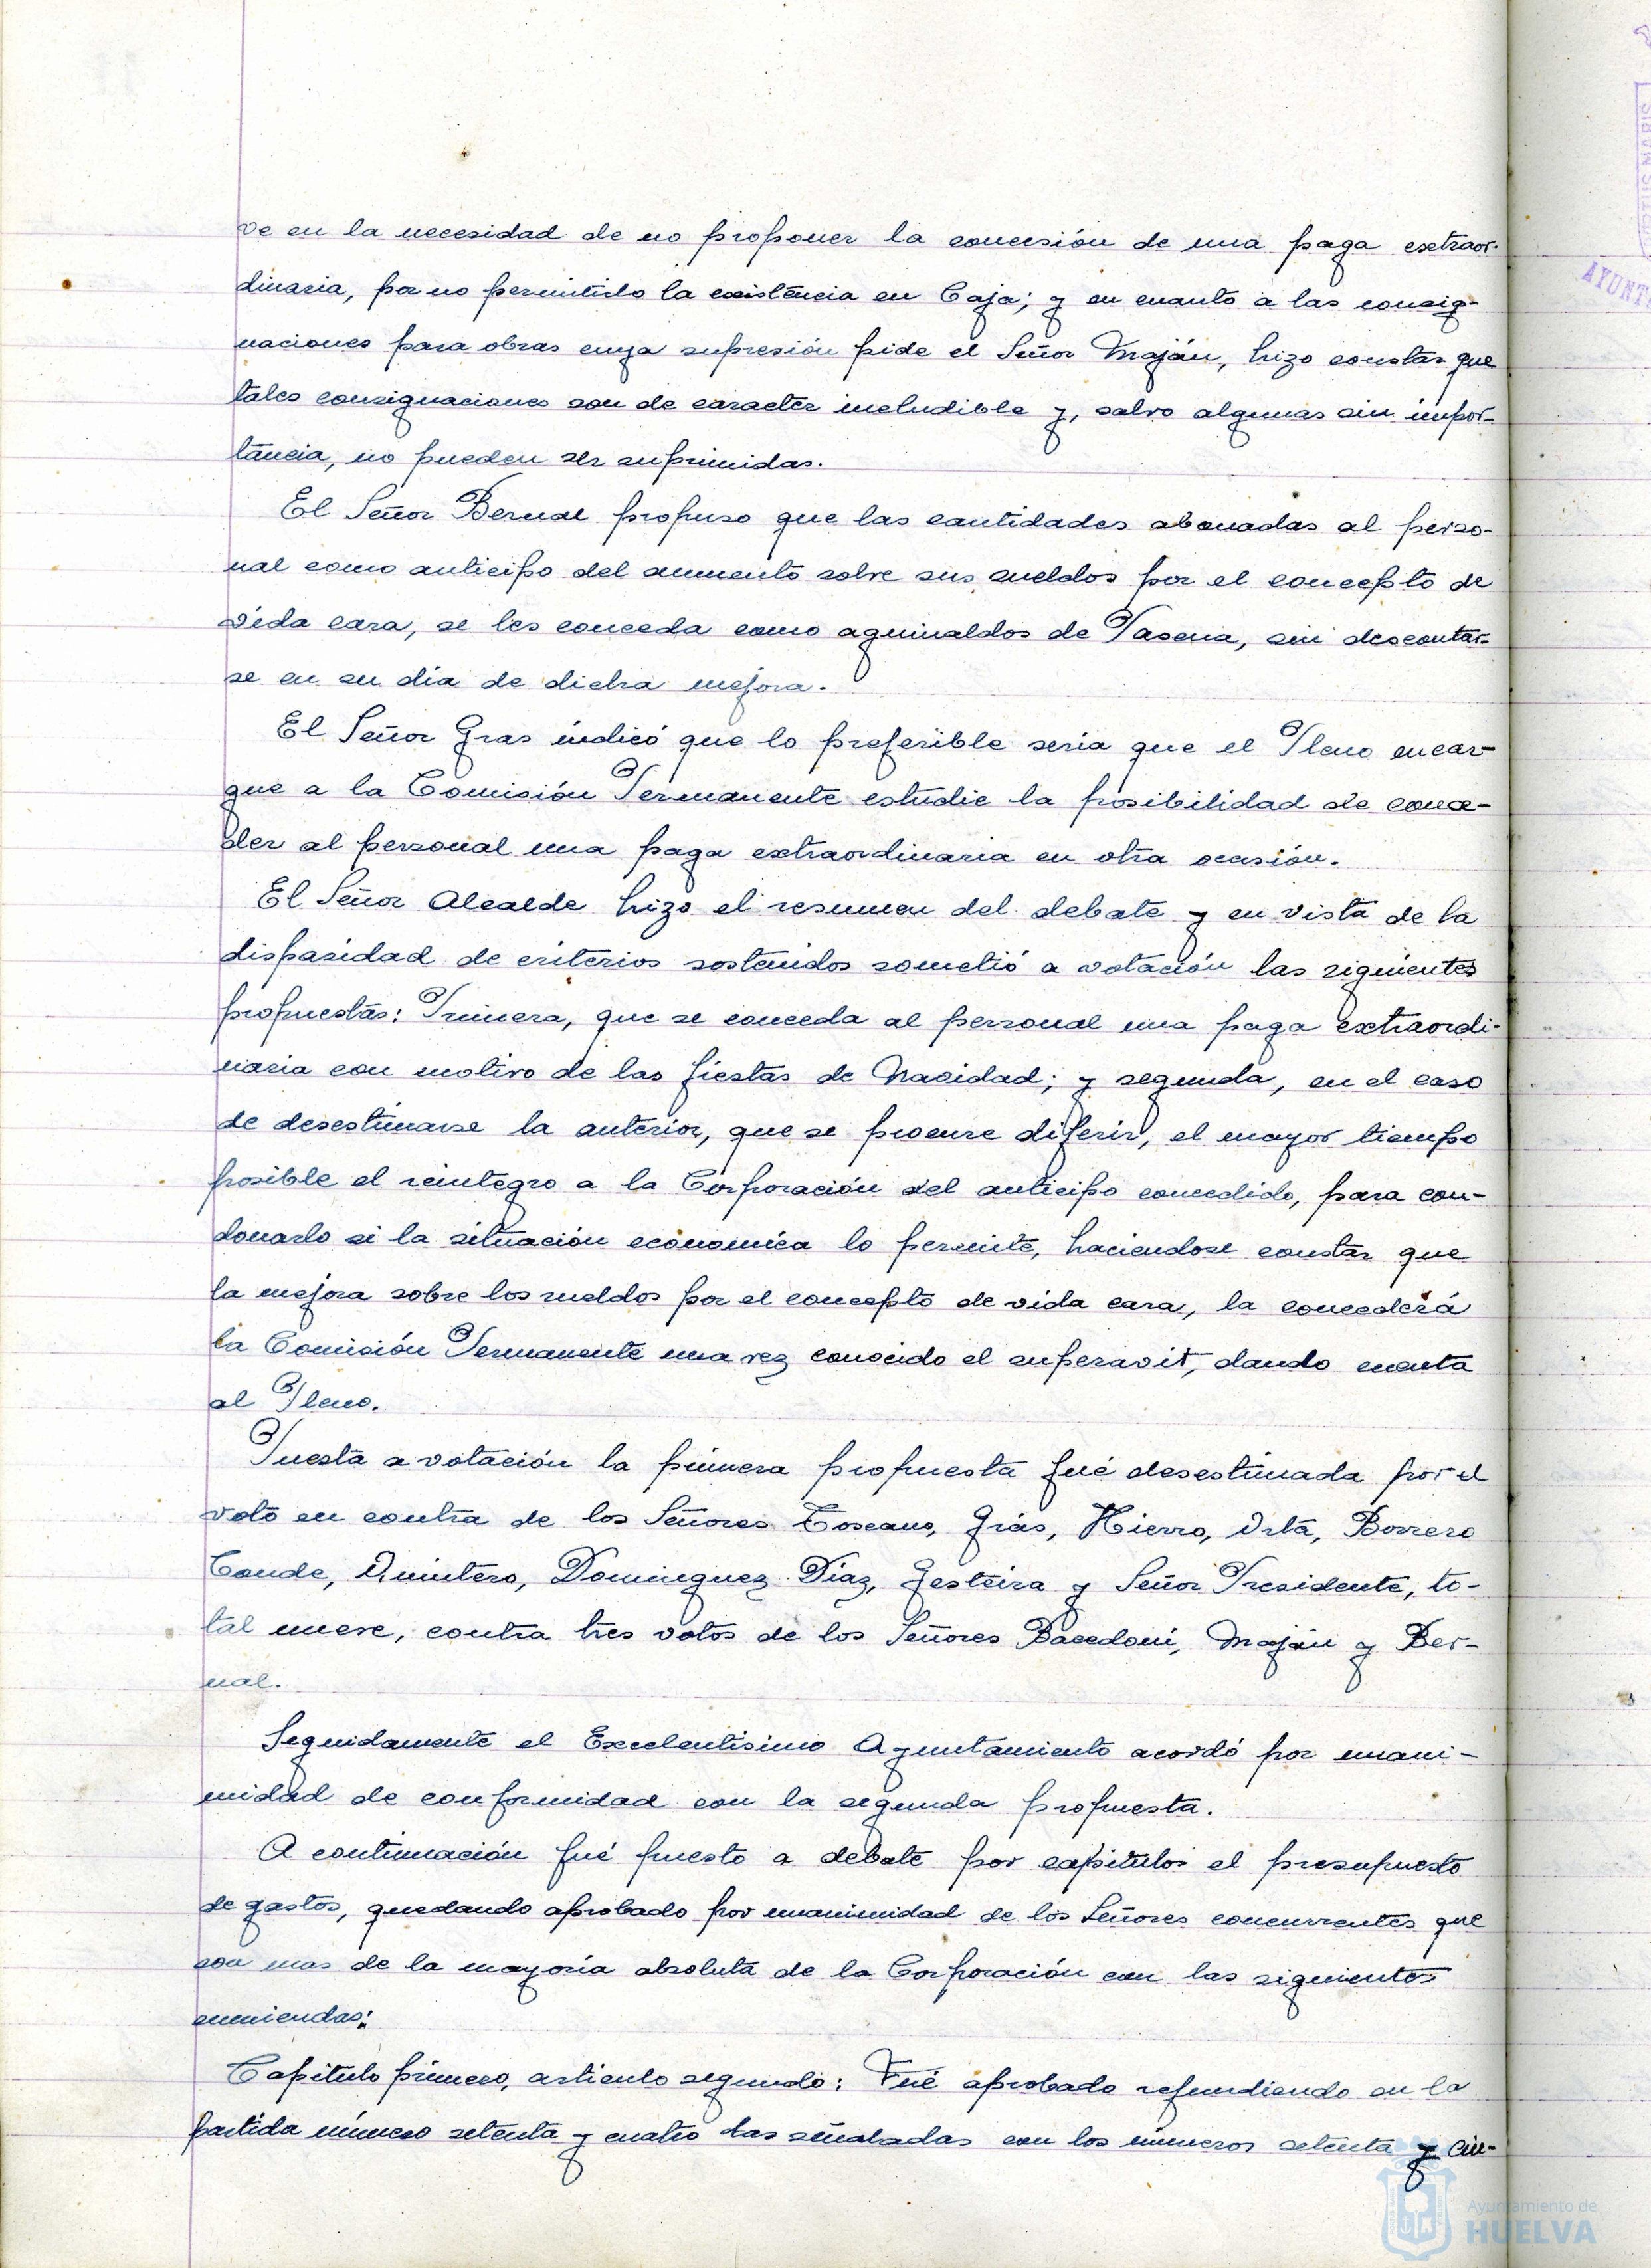 ve en la necesidad de no proponer la concesión de una paga extraor-
dinaria, por no permitirlo la existencia en Caja; y en cuanto a las consig-
naciones para obras cuya supresión pide el Señor Maján, hizo constar que
tales consignaciones son de caracter ineludible y, salvo algunas sin impor-
tancia, no pueden ser suprimidas.
El Señor Bernal propuso que las cantidades abonadas al perso-
nal como anticipo del aumento sobre sus sueldos por el concepto de
vida cara, se les conceda como aguinaldos de Pascua, sin descontar-
se en su día de dicha mejora.
El Señor Gras indicó que lo preferible sería que el Pleno encar-
gue a la Comisión Permanente estudie la posibilidad de conce-
der al personal una paga extraordinaria en otra ocasión.
El Señor Alcalde hizo el resumen del debate y en vista de la
disparidad de criterios sostenidos sometió a votación las siguientes
propuestas: Primera, que se conceda al personal una paga extraordi-
naria con motivo de las fiestas de Navidad; y segunda, en el caso
de desestimarse la anterior, que se procure diferir, el mayor tiempo
posible el reintegro a la Corporación del anticipo concedido, para con-
donarlo si la situación economica lo permite, haciendose constar que
la mejora sobre los sueldos por el concepto de vida cara, la concederá
la Comisión Permanente una vez conocido el superavit, dando cuenta
al Pleno.
Puesta a votación la primera propuesta fué desestimada por el
voto en contra de los Señores Toscano, Grás, Hierro, Orta, Borrero
Conde, Quintero, Dominguez Díaz, Gesteira y Señor Presidente, to-
tal nueve, contra tres votos de los Señores Bacedoni, Maján y Ber-
nal.
Seguidamente el Excelentisimo Ayuntamiento acordó por unani-
midad de conformidad con la segunda propuesta.
A continuación fué puesto a debate por capítulos el presupuesto
de gastos, quedando aprobado por unanimidad de los Señores concurrentes que
son mas de la mayoría absoluta de la Corporación con las siguientes
enmiendas:
Capitulo primero, articulo segundo: Fué aprobado refundiendo en la
partida número setenta y cuatro las señaladas con los números setenta y cin-
AYUNT
Ayuntamiento de
HUELVA